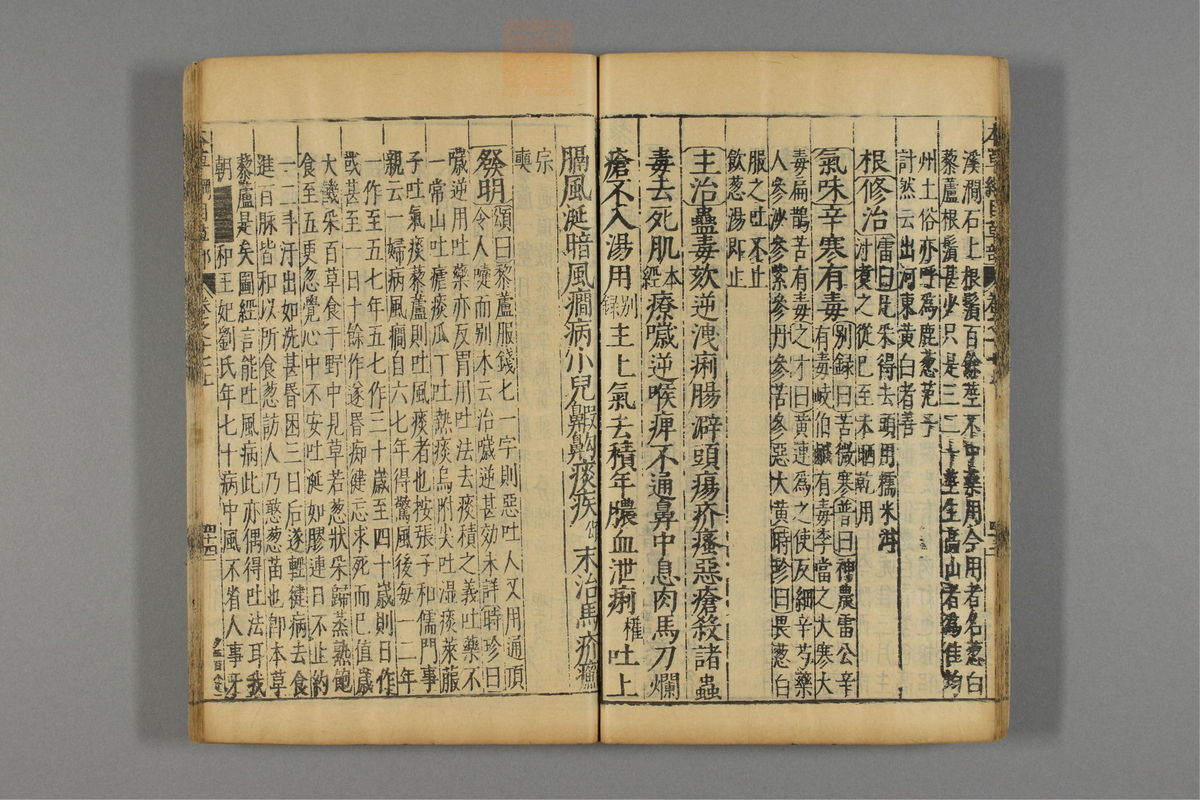 溪澗石上根鬚百餘莖不中藥用今用者名葱白
藜蘆根鬚甚少只是三二十莖生高山者爲佳均
州土俗亦呼爲鹿葱范子
計然云出河東黄白者善
根修治雷曰凡采得去頭用糯米泔
汁煑之從巳至未晒乾用
氣味辛寒有毒别録曰苦微寒普曰神農雷公辛
有毒岐伯鹹有毒李當之大寒大
毒扁鵲苦有毒之才曰黄連爲之使反細辛芍藥
人參沙參紫參丹參苦參惡大黄時珍曰畏葱白
服之吐不止
飲葱湯即止
主治蠱毒欬逆洩痢腸澼頭瘍疥瘙惡瘡殺諸蟲
毒去死肌本經療噦逆喉痺不通鼻中息肉馬刀爛
瘡不入湯用别録主上氣去積年膿血泄痢權吐上
膈風涎暗風癎病小兒鰕鼾痰疾頌末治馬疥癬
宗
奭
發明頌曰藜蘆服錢七一字則惡吐人又用通頂
令人嚏而别本云治噦逆甚効未詳時珍曰
噦逆用吐藥亦反胃用吐法去痰積之義吐藥不
一常山吐瘧痰瓜丁吐熱痰烏附尖吐湿痰萊菔
子吐氣痰藜蘆則吐風痰者也按張子和儒門事
親云一婦病風癎自六七年得驚風後每一二年
一作至五七年五七作三十歲至四十歲則日作
或甚至一日十餘作遂昏痴健忘求死而已值歲
大饑采百草食于野中見草若葱狀采歸蒸熟飽
食至五更忽覺心中不安吐涎如膠連日不止約
一二斗汗出如洗甚昏困三日后遂輕徤病去食
進百脉皆和以所食葱訪人乃憨葱苗也卽本草
藜蘆是矣圖經言能吐風病此亦偶得吐法耳我
朝
和王妃劉氏年七十病中風不省人事牙
四十四